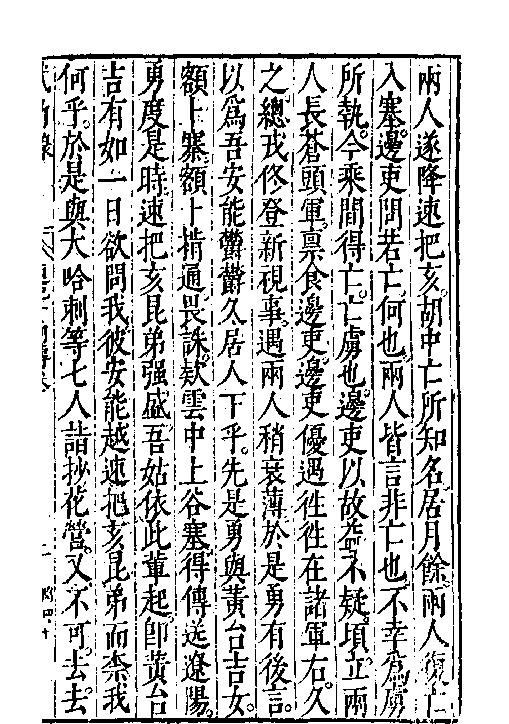 兩人遂降速把亥。胡中亡所知名。居月餘。兩人復亡
入塞。邊吏問若亡。何也。兩人皆言非亡也。不幸為虜
所執。今乘間得亡。亡虜也。邊吏以故益不疑。頃立兩
人長蒼頭軍。禀食邊吏。邊吏優遇徃徃在諸軍右。久
之。總戎佟登新視事。遇兩人稍衰薄於是勇有後言。
以為吾安能鬱鬱久居人下乎。先是勇與黃台吉女。
額上寨額卜楷通。畏誅。欵雲中上谷塞得傳送遼陽。
勇度是時速把亥昆弟强盛。吾姑依此軰起。卽黃台
吉有如一日欲問我。彼安能越速把亥昆弟而柰我
何乎。於是與大哈刺等七人詣抄花營。又不可。去。去